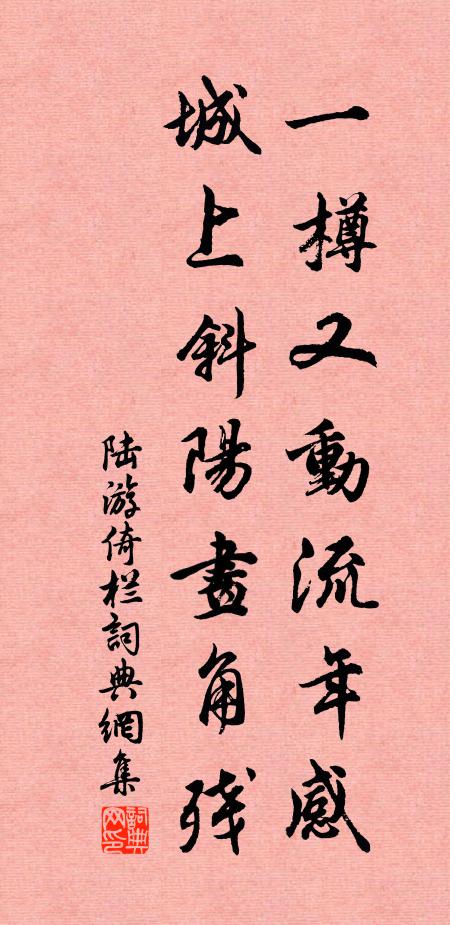 一樽又動流年感
城上斜陽畫角残
陆游倚栏詞典網集
詞典网印